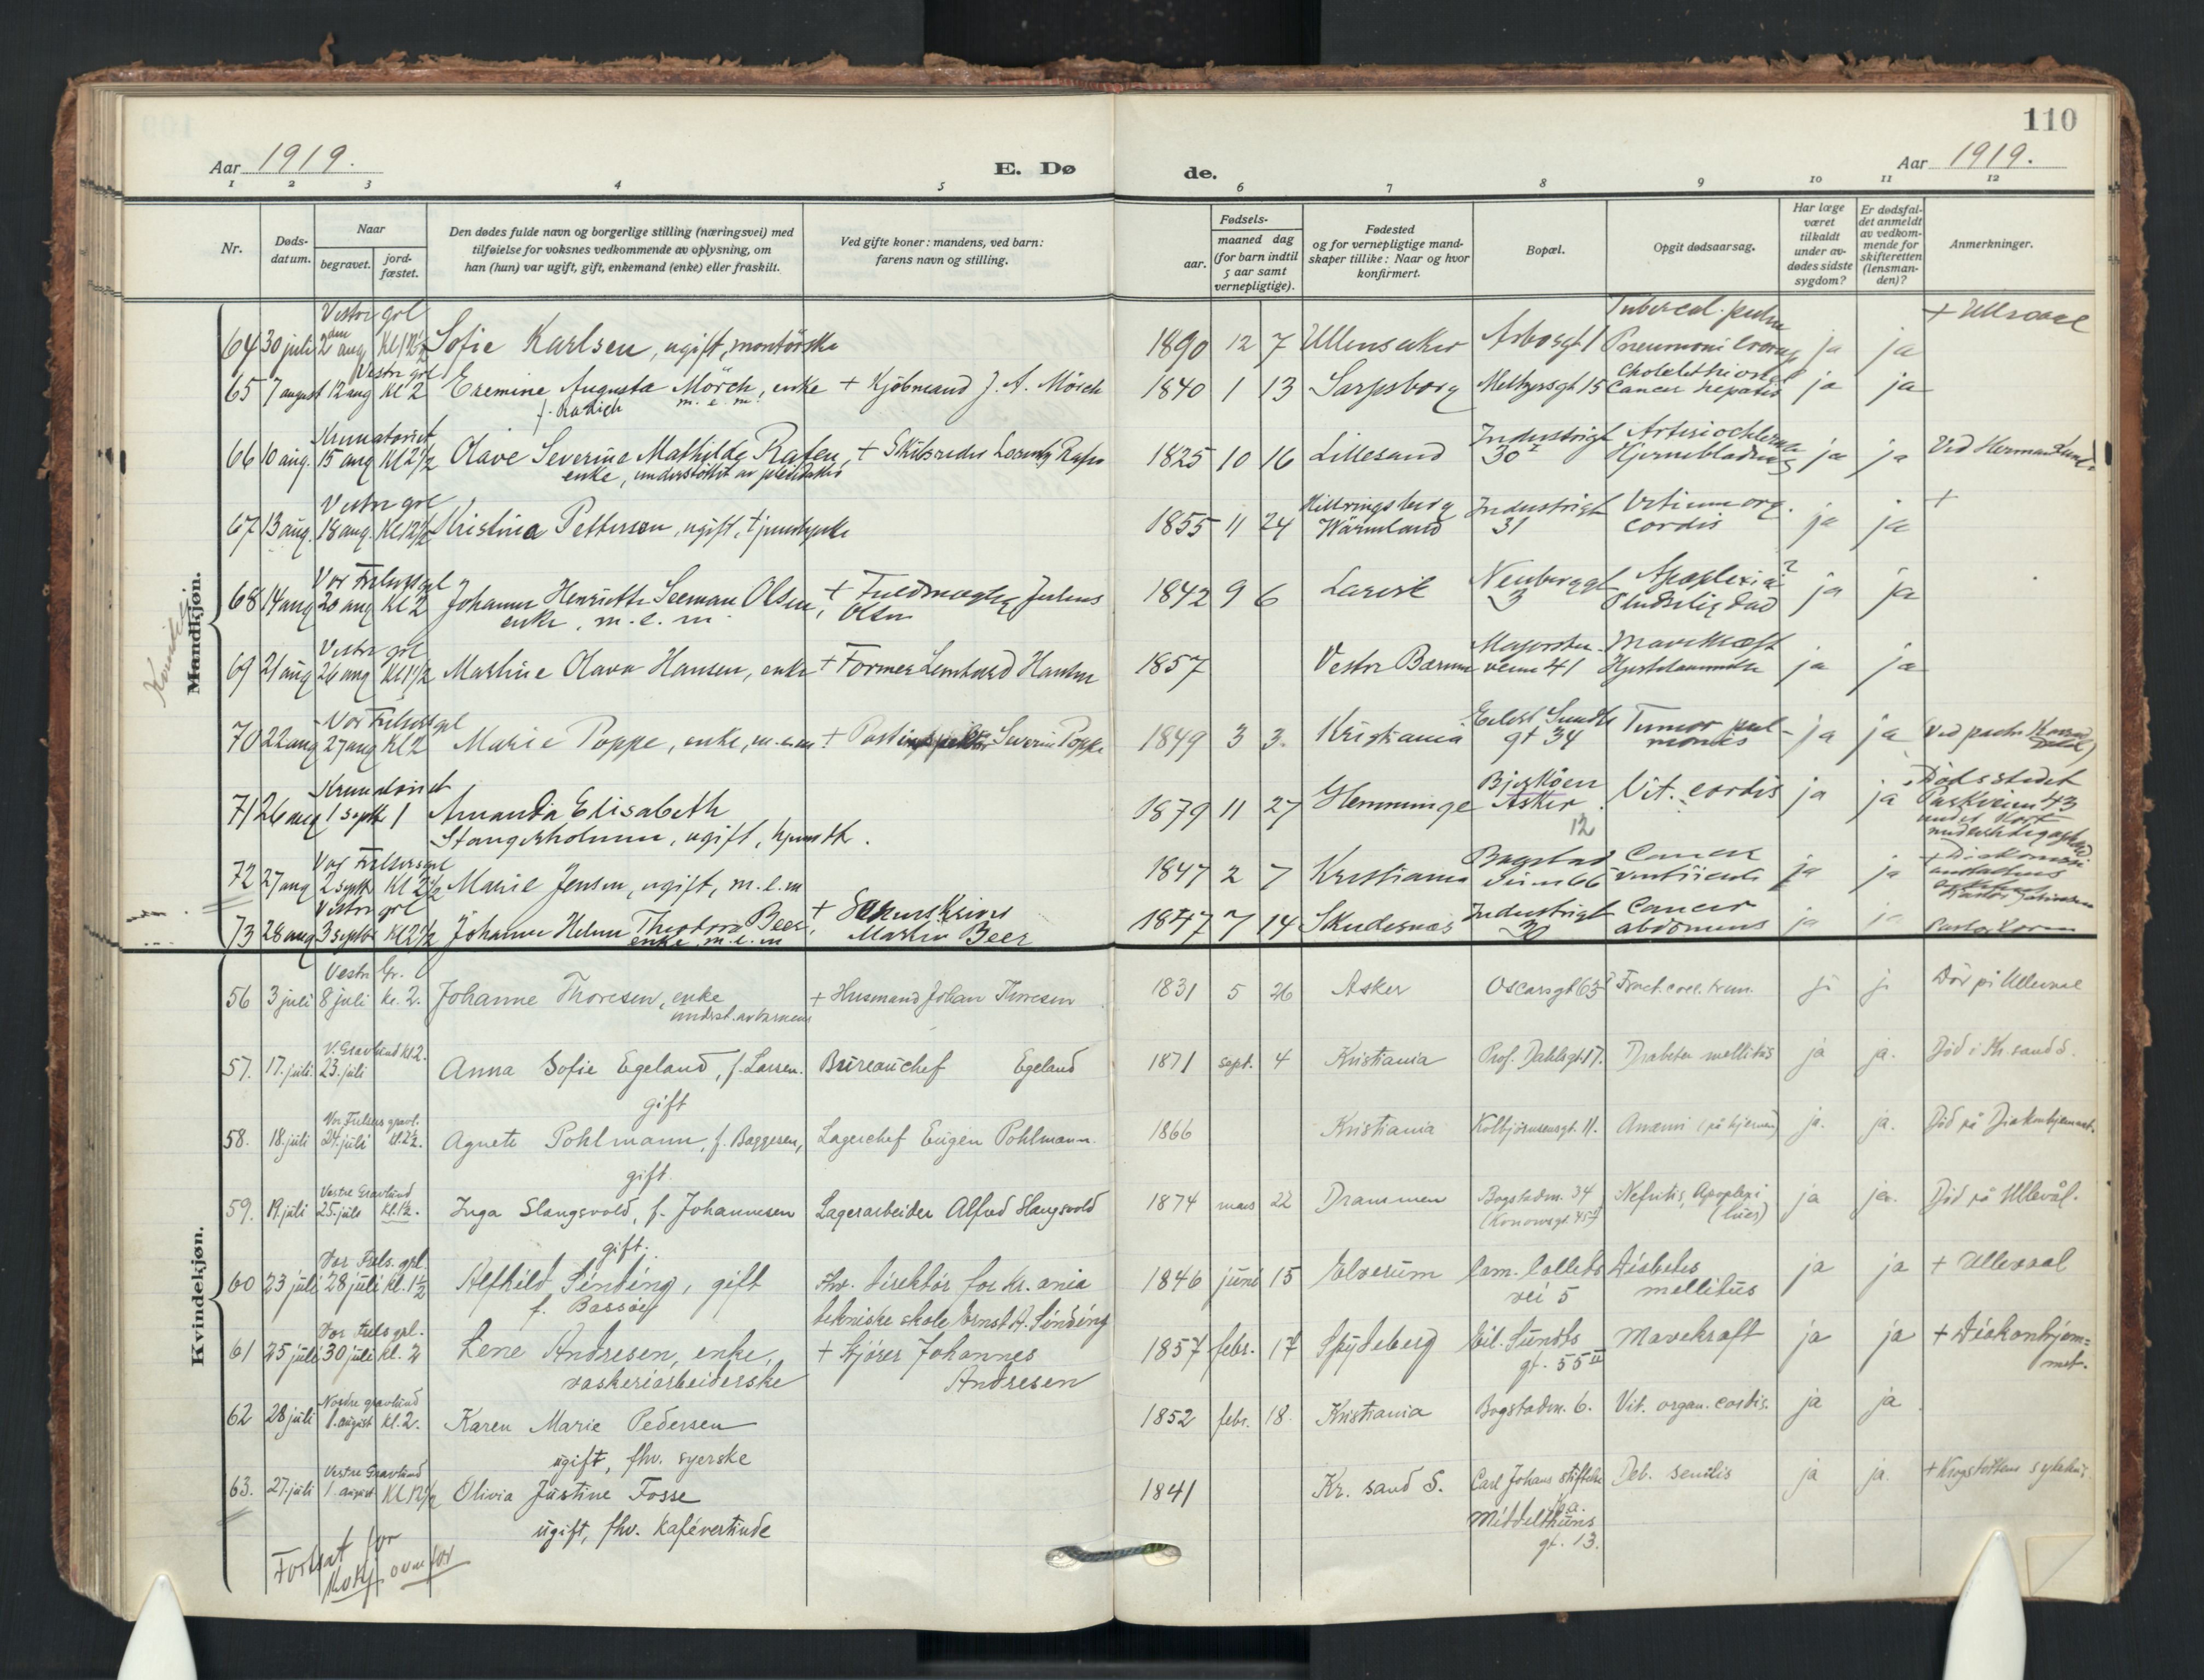 110
Aar 1919.
E. Dø
de.
Aar 1919.
1 2 3 4 5 6 7 8 9 10 11 12
Nr.
Døds-
datum.
Naar
begravet.
jord-
fæstet.
Den dødes fulde navn og borgerlige stilling (næringsvei) med
tilføielse for voksnes vedkommende av oplysning, om
han (hun) var ugift, gift, enkemand (enke) eller fraskilt.
Ved gifte koner: mandens, ved barn:
farens navn og stilling.
Fødsels-
aar.
maaned dag
(for barn indtil
5 aar samt
vernepligtige).
Fødested
og for vernepligtige mand-
skaper tillike: Naar og hvor
konfirmert.
Bopæl.
Opgit dødsaarsag.
Har læge
været
tilkaldt
under av-
dødes sidste
sygdom?
Er dødsfal-
det anmeldt
av vedkom-
mende for
skifteretten
(lensman-
den)?
Anmerkninger.
Mandkjøn.
Vestre grl Tubercul. pulm + Ullevaal
64 30 juli 2den aug Kl 12½ Sofie Karlsen, ugift, montörske 1890 12 7 Ullensaker Arbosgt 1 Pneumoni croup ja ja
Vestre grl Cholelithiasis
65 7 august 12 aug Kl 2 Eremine Augusta Mörch, enke + Kjöbmand J. A. Mörch 1840 1 13 Sarpsborg Meltzersgt 15 Cancer hepatis ja ja
m. e. m.
Krematoriet Industrigt
66 10 aug. 15 aug Kl 2½ Olave Severine Mathilde Rafen, + Skibsreder Lorentz Rafen 1825 10 16 Lillesand 30 Hjerneblødning ja ja Ved Herman Lunde
enke, understöttet av
Vestre grl Hillringsberg Industrigt Vitium org. +
67 13 aug. 18 aug. Kl 12½ Kristina Petterson, ugift, tjenestepike 1855 11 24 Wärmland 31 cordis ja ja
Vor Frelsers grl Neuberggt Apoplexia ?
68 14 aug 20 aug Kl 2 Johanne Henriette Seeman Olsen, + Fuldmægtig Julius 1842 9 6 Larvik 3 Pludselig död ja ja
enke, m. e. m. Olsen
Vestre grl Majorstu- Mavekræft
69 21 aug 26 aug Kl 1½ Mathine Olava Hansen, enke + Former Lenhard Hansen 1857 Vestre Bærum veien 41 ja ja
Vor Frelsers grl Eilert Sundts Tumor pul-
70 22 aug 27 aug Kl 2 Marie Poppe, enke, m.e.m + Postinspektör Severin Poppe 1849 3 3. Kristiania gt 34 monis ja ja Ved pastor Konrad
Krematoriet Bjerkåsen Dödsstedet
71 26 aug 1 septb 1 Amanda Elisabeth 1879 11 27 Hemminge Asker Vit. cordis ja ja Parkveien 43
Stangerholmen, ugift, 12
Vor Frelsers grl Bogstad Cancer + Diakonisse
72 27 aug 2 septb Kl 2½ Marie Jensen, ugift, m.e.m 1847 2 7 Kristiania veien 66 ventriculi ja ja anstaltens
Vestre grl + Industrigt Cancer
73 28 aug 3 septbr Kl 2½ Johanne Helene Theodora Beer, Martin Beer 1847 7 14 Skudesnæs 30 abdomens ja ja Pastor
enke, m.e.m
Kvindekjøn.
Vestre Gr.
56 3 juli 8 juli kl. 2. Johanne Thoresen, enke + Husmand Johan Thoresen 1831 5 26 Asker Oscarsgt 63 Fract. coll. fem. ja ja Dör på Ullevaal
underst. av barnene
V. Gravlund Kl 2.
57. 17. juli. 23. juli Anna Sofie Egeland, f. Larsen. Bureauchef Egeland 1871 sept. 4 Kristiania Prof. Dahlsgt. 17. Diabetes mellitus ja ja. Död i Kr. sand S.
gift
Vor Frelsers gravl.
58. 18. juli 24. juli kl. 2½. Agnete Pohlmann, f. Baggesen, Lagerchef Eugen Pohlmann. 1866 Kristiania Kolbjörnsensgt. 11. Anæmi (på hjernen) ja. ja. Död på Diakonhjemmet.
gift.
Vestre Gravlund
59. 19. juli 25. juli kl. 1½. Inga Slangsvold, f. Johannesen Lagerarbeider Alfred Slangsvold 1874 mars 22 Drammen Bogstadv. 34 Nefritis, Apoplexi ja ja. Död på Ullevål.
gift. (Konowsgt. 45) (lues)
Vor Frels. grl.
60 23 juli 28 juli kl. 1½ Alfhild Sinding, gift Fhv. direktör for Kr.ania 1846 juni 15 Elverum Cam. Colletts Diabetes ja ja + Ullevaal
f. Bassöe tekniske skole Ernst A. Sinding vei 5 mellitus
Vor Frels grl.
61 25 juli 30 juli kl. 2 Lene Andresen, enke, + Kjörer Johannes 1857 febr. 17 Spydeberg Eil. Sundts Mavekraft ja ja + Diakonhjem-
vaskeriarbeiderske Andresen gt. 55 II met.
Nordre gravlund
62 28 juli 1. august kl. 2. Karen Marie Pedersen 1852 febr. 18. Kristiania Bogstadv. 6. Vit. organ. cordis. ja ja
ugift, fhv. syerske
Vestre Gravlund
63. 27. juli 1. august Kl 12½ Olivia Justine Fosse 1841 Kr. sand S. Carl Johans stiftelse Deb. senilis ja ja. + Krogstöttens sykehus.
ugift, fhv. kafévertinde Middelthuns
gt. 13.
Fortsat for
Kvkj. ovenfor